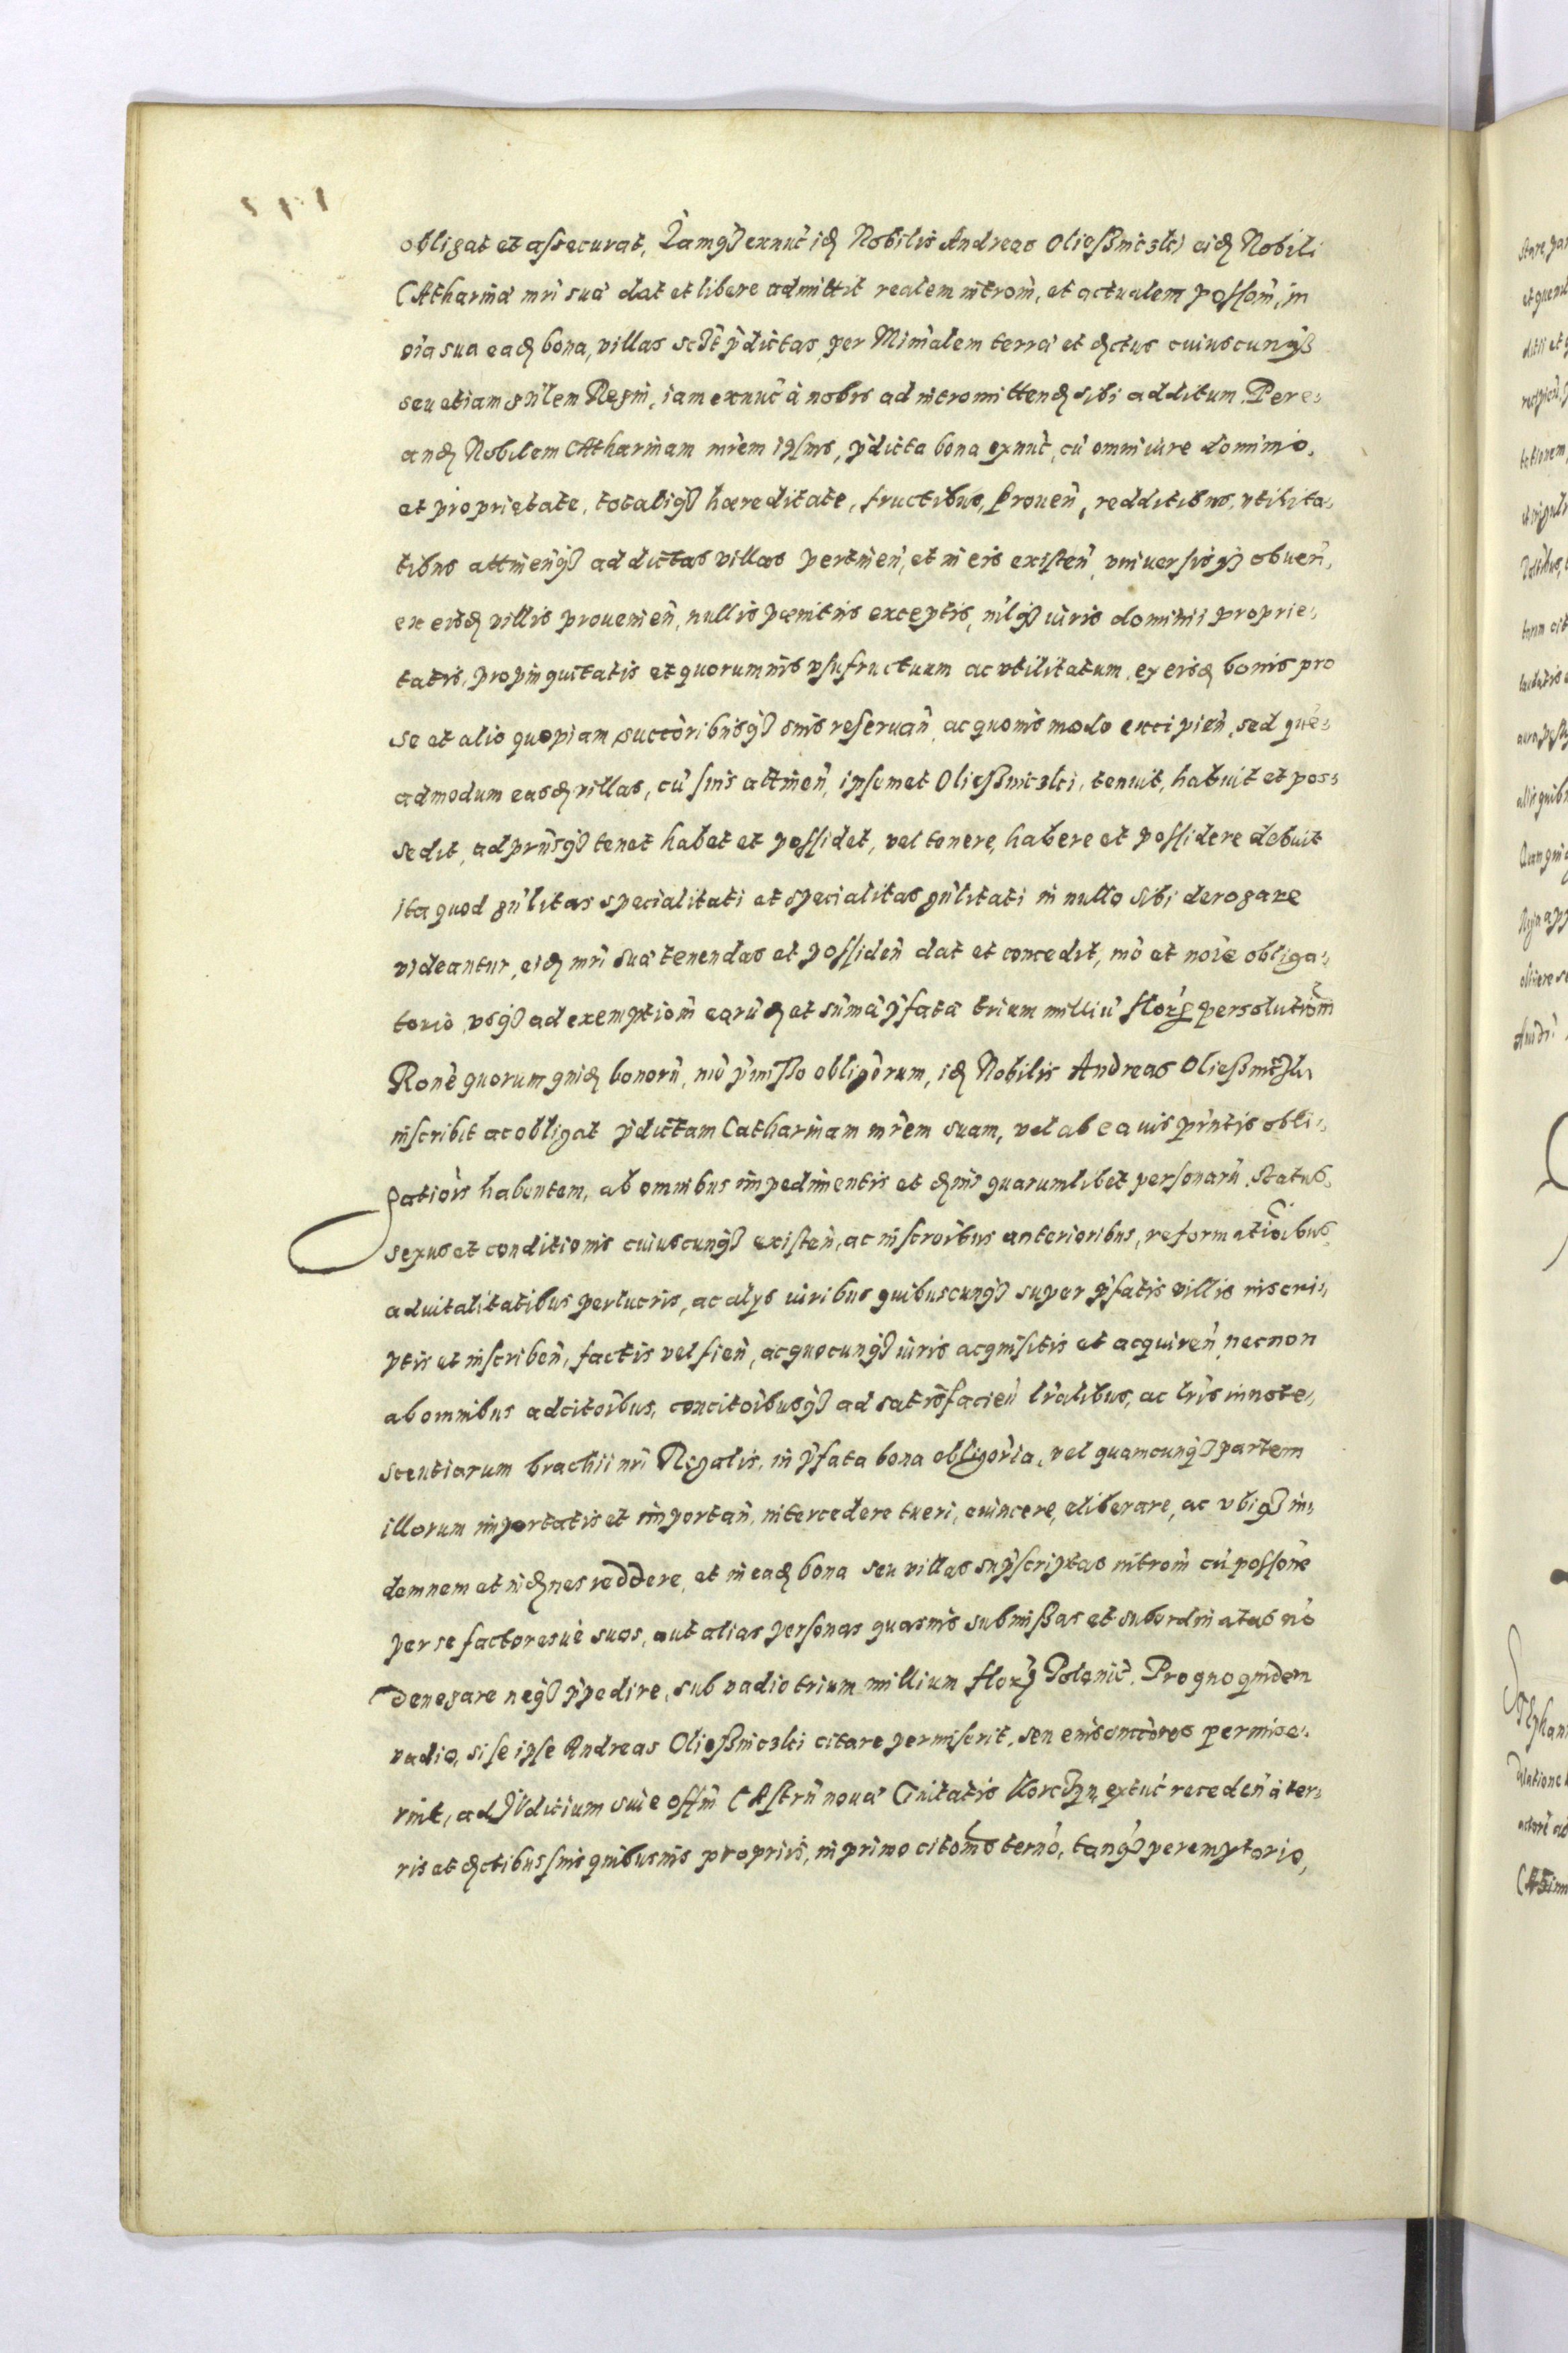 obligat et assecurat, Iamq₃ exnuc̄ idꝫ Nobilis Andreas Oließniczki eidꝫ Nobili
CAtharinæ mr̄i suæ dat et libere admittit realem introm̄, et actualem possom̄, in
oīa sua eadꝫ bona, villas scꝉt p̄dictas per Min̄alem terræ et dꝫctus cuiuscunq₃
seu etiam gn̄lem Regni, iam exnuc̄ à nobis ad intromittendꝫ sibi additum. Per e⸗
andꝫ Nobilem CAtharinam mr̄em ipsius, p̄dicta bona exnuc̄, cū omni iure dominio,
et proprietate, totaliq₃ hæreditate, fructibus, prouen̄, redditibus, vtilita⸗
tibus attinen̄q₃ ad dictas villas pertinen̄, et in eis existen̄, vniuersisq₃ obuen̄,
ex eisdꝫ villis prouenien̄, nullis pænitus exceptis, nilq₃ iuris dominii proprie⸗
tatis, propinquitatis et quorumuis vsufructuum ac vtilitatum, ex eisdꝫ bonis pro
se et alio quopiam successoribusq₃ suis reseruan̄, ac quouismodo excipien̄, sed quē⸗
admodum easdꝫ villas, cū suis attinen̄, ipsemet Oließniczki, tenuit, habuit et pos⸗
sedit, ad prn̄sq₃ tenet habet et possidet, vel tenere, habere et possidere debuit
ita quod gn̄litas specialitati et specialitas gn̄litati in nullo sibi derogare
videantur, eidꝫ mr̄i suæ tenendas et possiden̄ dat et concedit, mō et nōie obliga⸗
torio vsq₃ ad exemptiom̄ earūdꝫ et sum̄æ p̄fatæ trium milliū floꝝ persolutiom̄
Ronē quorum quidꝫ bonorū, mō p̄misso obligōrum, idꝫ Nobilis Andreas Oließniczki
inscribit ac obligat p̄dictam Catharinam mr̄em suam, vel ab ea ius prn̄tis obli⸗
gatiōis habentem, ab omnibus impedimentis et dꝫnis quarumlibet personarū, status,
sexus et conditionis cuiuscunq₃ existen̄, ac inscrōibus anterioribus, reformatiōibus,
aduitalitatibus perlucris, ac alijs iuribus quibuscunq₃ super p̄fatis villis inscri⸗
ptis et inscriben̄, factis vel fien̄, ac quocunq₃ iuris acquisitis et acquiren̄ necnon
ab omnibus adcitōibus, concitōibusq₃ ad satisfacien̄ lr̄alibus, ac lr̄is innote⸗
scentiarum brachii nr̄i Regalis, in p̄fata bona obligōria, vel quamcunq₃ partem
illorum importatis et importan̄, intercedere tueri, euincere, eliberare, ac vbiq₃ in⸗
demnem et indꝫnes reddere, et in eadꝫ bona seu villas sup̄scriptas introm̄ cū possōne
per se factoresuè suos, aut alias personas quasuis submißas et subordinatas nō
denegare neq₃ p̄pedire, sub vadio trium millium floꝝ Polonic̄. Pro quo quidem
vadio, si se ipse Andreas Oließniczki citare permiserit, seu eius succ̄ores permise⸗
rint, ad Iuditium siue offm̄ CAstrn̄ nouæ Ciuitatis Korczyn, extuc̄ receden̄ à ter⸗
ris et dꝫctibus suis quibusuis propriis, in primo citōnis termō, tanq₃ peremptorio,